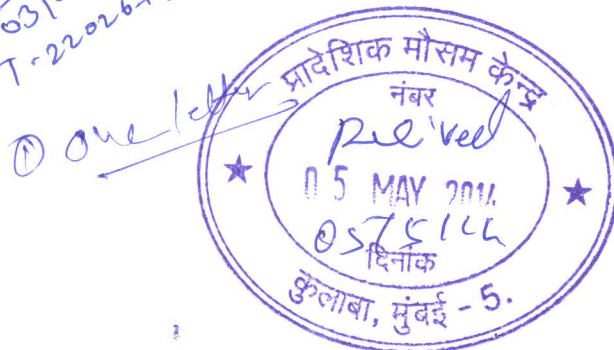 03/
T-22026
① One letter
प्रादेशिक मौसम केन्द्र
नंबर
Rec'ved
05 MAY 2014
05/5/14
दिनांक
कुलाबा, मुंबई - 5.